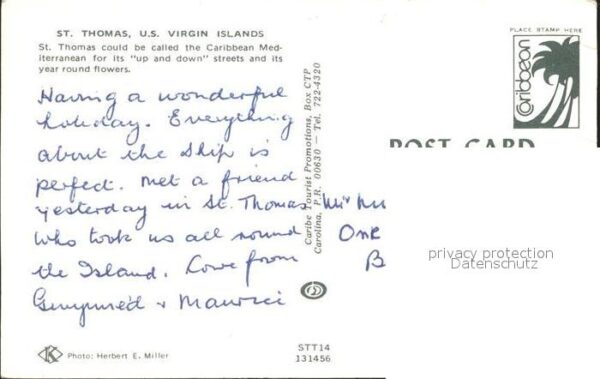 ST. THOMAS, U.S. VIRGIN ISLANDS
St. Thomas could be called the Caribbean Med-
iterranean for its "up and down" streets and its
year round flowers.
Having a wonderful
holiday. Everything
about the ship is
perfect. Met a friend
yesterday in St. Thomas
who took us all round
the Island. Love from
Photo: Herbert E. Miller
Caribe Tourist Promotions, Box CTP
Carolina, P.R. 00630 — Tel. 722-4320
STT14
131456
PLACE STAMP HERE
Caribbean
POST CARD
One
B
privacy protection
Datenschutz